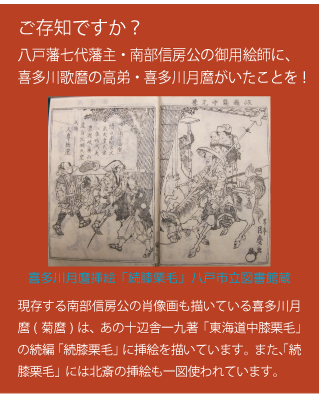 ご存知ですか？
八戸藩七代藩主・南部信房公の御用絵師に、
喜多川歌麿の高弟・喜多川月麿がいたことを！
喜多川月麿挿絵「続膝栗毛」八戸市立図書館蔵
現存する南部信房公の肖像画も描いている喜多川月
麿（菊麿）は、あの十辺舎一九著「東海道中膝栗毛」
の続編「続膝栗毛」に挿絵を描いています。また、「続
膝栗毛」には北斎の挿絵も一図使われています。